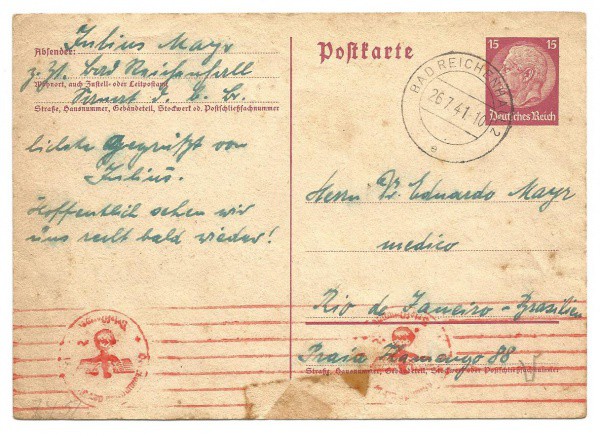 Absender: Julius Mayr
z. Zt. Bad Reichenhall
Wohnort, auch Zustell- oder Leitpostamt
Straße, Hausnummer, Gebäudeteil, Stockwerk od. Postschließfachnummer
Gegrüßt von
Julius.
Hoffentlich sehen wir
uns recht bald wieder!
Postkarte
15 15
Deutsches Reich
BAD REICHENHALL 2
26.7.41-10
e
Herrn Dr. Eduardo Mayr
medico
Rio de Janeiro - Brasilien
Praia Flamengo 88
Straße, Hausnummer, Gebäudeteil, Stockwerk oder Postschließfachnummer